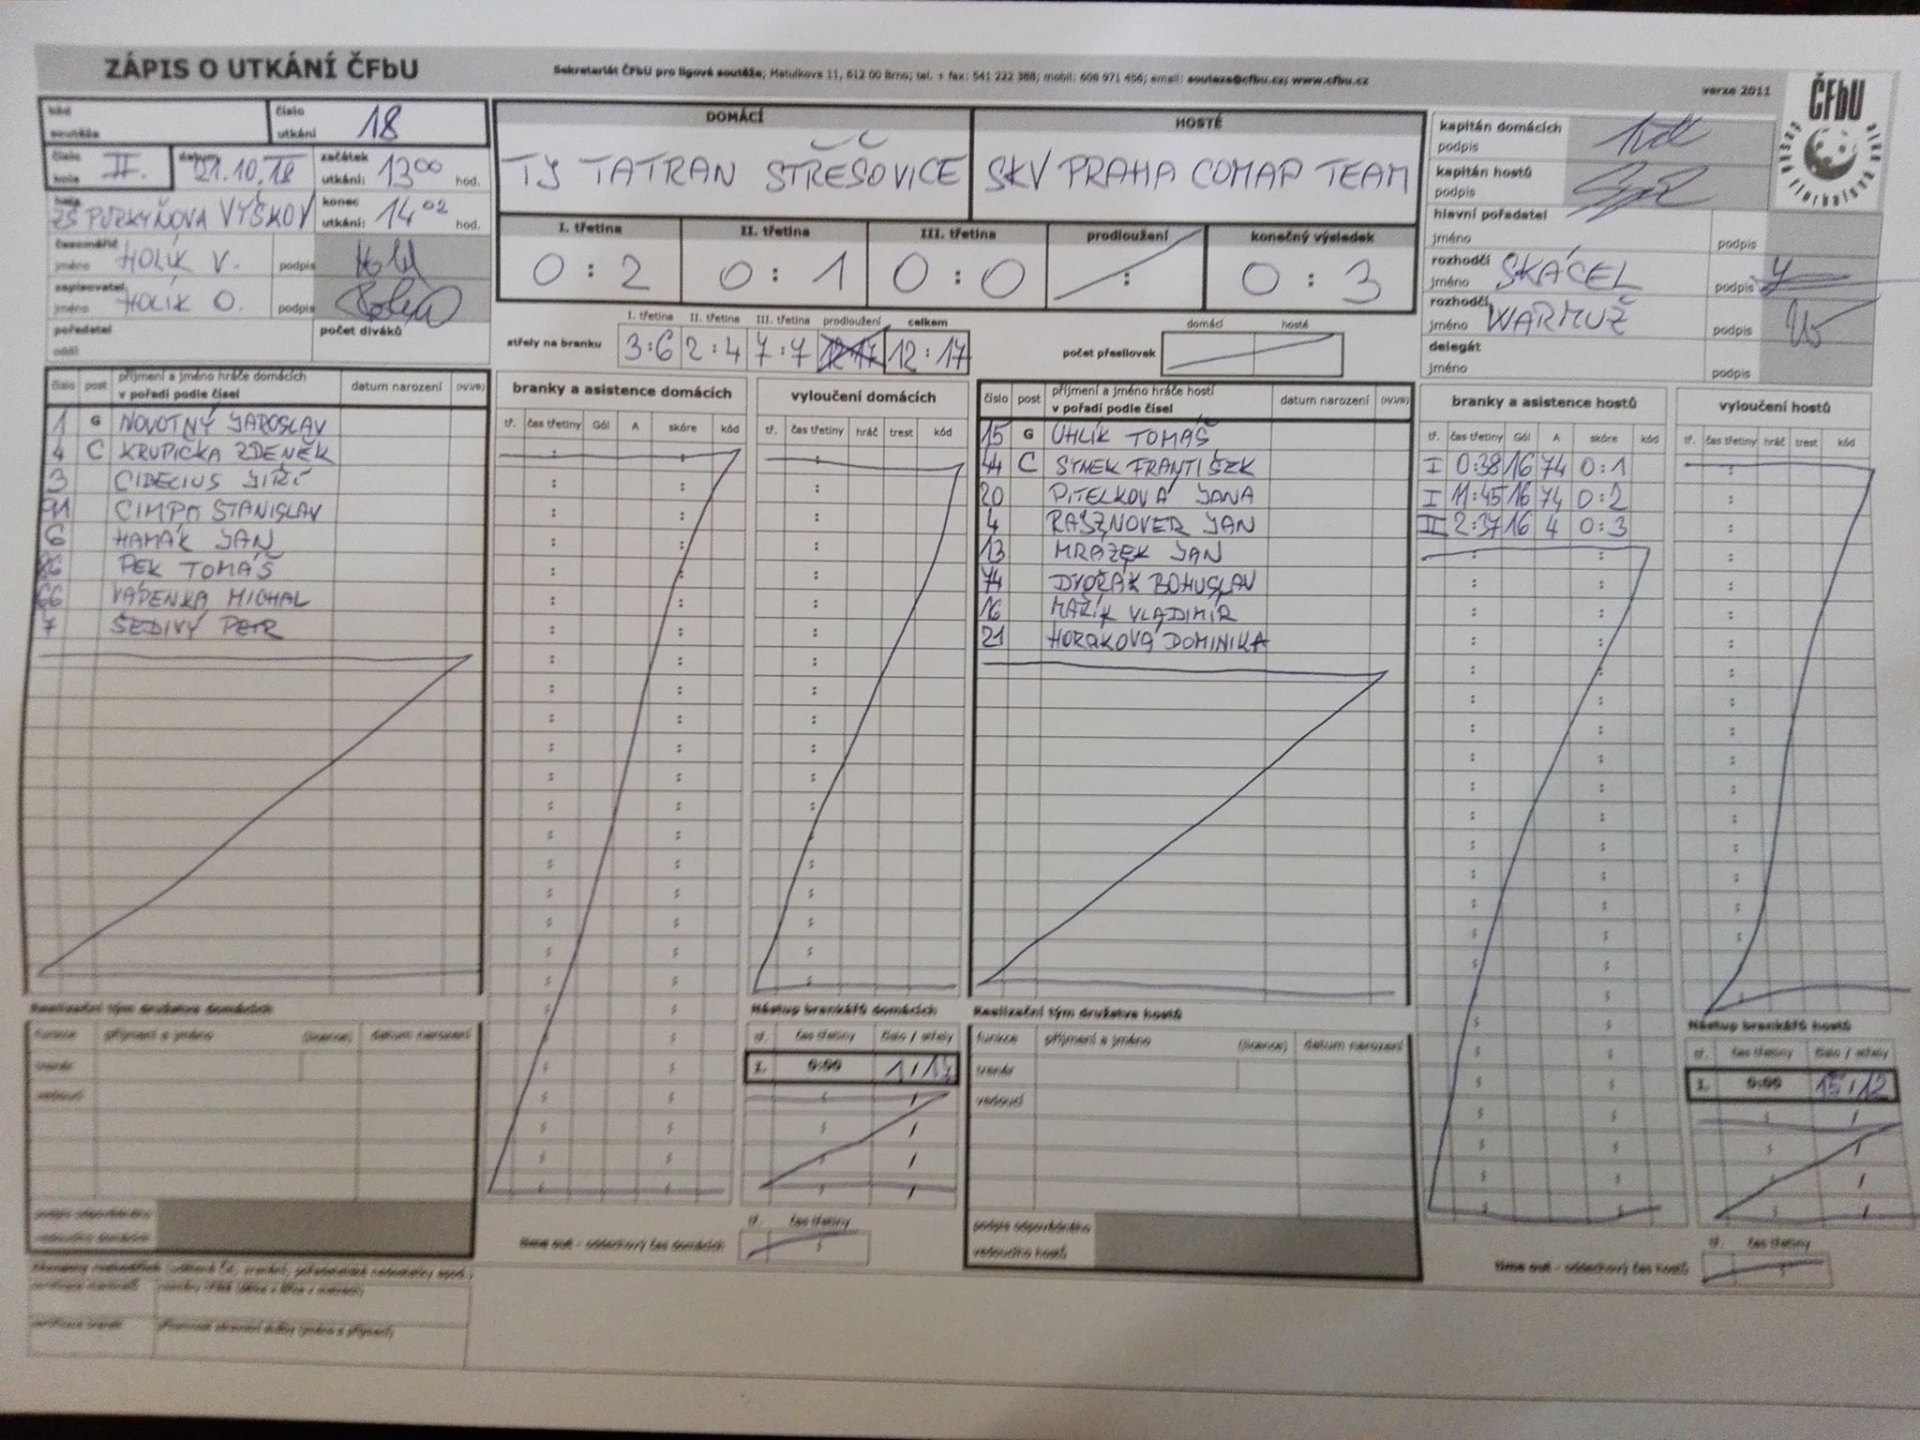 ZÁPIS O UTKÁNÍ ČFbU
Sekretariát ČFbU pro ligové soutěže; Matulkova 11, 612 00 Brno; tel. + fax: 541 222 388; mobil: 608 971 456; email: souteze@cfbu.cz; www.cfbu.cz
verze 2011
ČFbU
kód soutěže
číslo utkání 18
číslo kola II.
datum 21.10.18
začátek utkání: 13 00 hod.
ZŠ PURKYŇOVA VYŠKOV
konec utkání: 14 02 hod.
časoměřič jméno HOLÍK V. podpis
zapisovatel jméno HOLÍK O. podpis
pořadatel oddíl
počet diváků
DOMÁCÍ
TJ TATRAN STŘEŠOVICE
HOSTÉ
SKV PRAHA COMAP TEAM
I. třetina II. třetina III. třetina prodloužení konečný výsledek
0 : 2 0 : 1 0 : 0 : 0 : 3
I. třetina II. třetina III. třetina prodloužení celkem
střely na branku 3:6 2:4 7:7 12:17 12:17
domácí hosté
počet přesilovek
kapitán domácích podpis
kapitán hostů podpis
hlavní pořadatel
jméno podpis
rozhodčí
jméno SKÁCEL podpis
rozhodčí
jméno WARMUŽ podpis
delegát
jméno podpis
číslo post příjmení a jméno hráče domácích v pořadí podle čísel datum narození
1 G NOVOTNÝ JAROSLAV
4 C KRUPIČKA ZDENĚK
3 CIBELIUS JIŘÍ
STANISLAV
6 HAMÁK JAN
PEK TOMÁŠ
66 VAŘENKA MICHAL
7 ŠEDIVÝ PETR
branky a asistence domácích
tř. čas třetiny Gól A skóre kód
vyloučení domácích
tř. čas třetiny hráč trest kód
číslo post příjmení a jméno hráče hostí v pořadí podle čísel datum narození
15 G UHLÍK TOMÁŠ
44 C SYNEK FRANTIŠEK
20 PITELKOVÁ JANA
4 RAJZNOVER JAN
13 MRÁZEK JAN
74 DVOŘÁK BOHUSLAV
16 MAŘÍK VLADIMÍR
21 HORÁKOVÁ DOMINIKA
branky a asistence hostů
tř. čas třetiny Gól A skóre kód
I 0:38 16 74 0:1
I 11:45 16 74 0:2
II 2:37 16 4 0:3
vyloučení hostů
tř. čas třetiny hráč trest kód
Realizační tým družstva domácích
funkce příjmení a jméno (licence) datum narození
trenér
vedoucí
podpis odpovědného vedoucího domácích
Nástup brankářů domácích
tř. čas třetiny číslo / střely
I. 0:00 1 / 17
tř. čas třetiny
time out - oddechový čas domácích
Realizační tým družstva hostů
funkce příjmení a jméno (licence) datum narození
trenér
vedoucí
podpis odpovědného vedoucího hostů
Nástup brankářů hostů
tř. čas třetiny číslo / střely
I. 0:00 15 / 12
tř. čas třetiny
time out - oddechový čas hostů